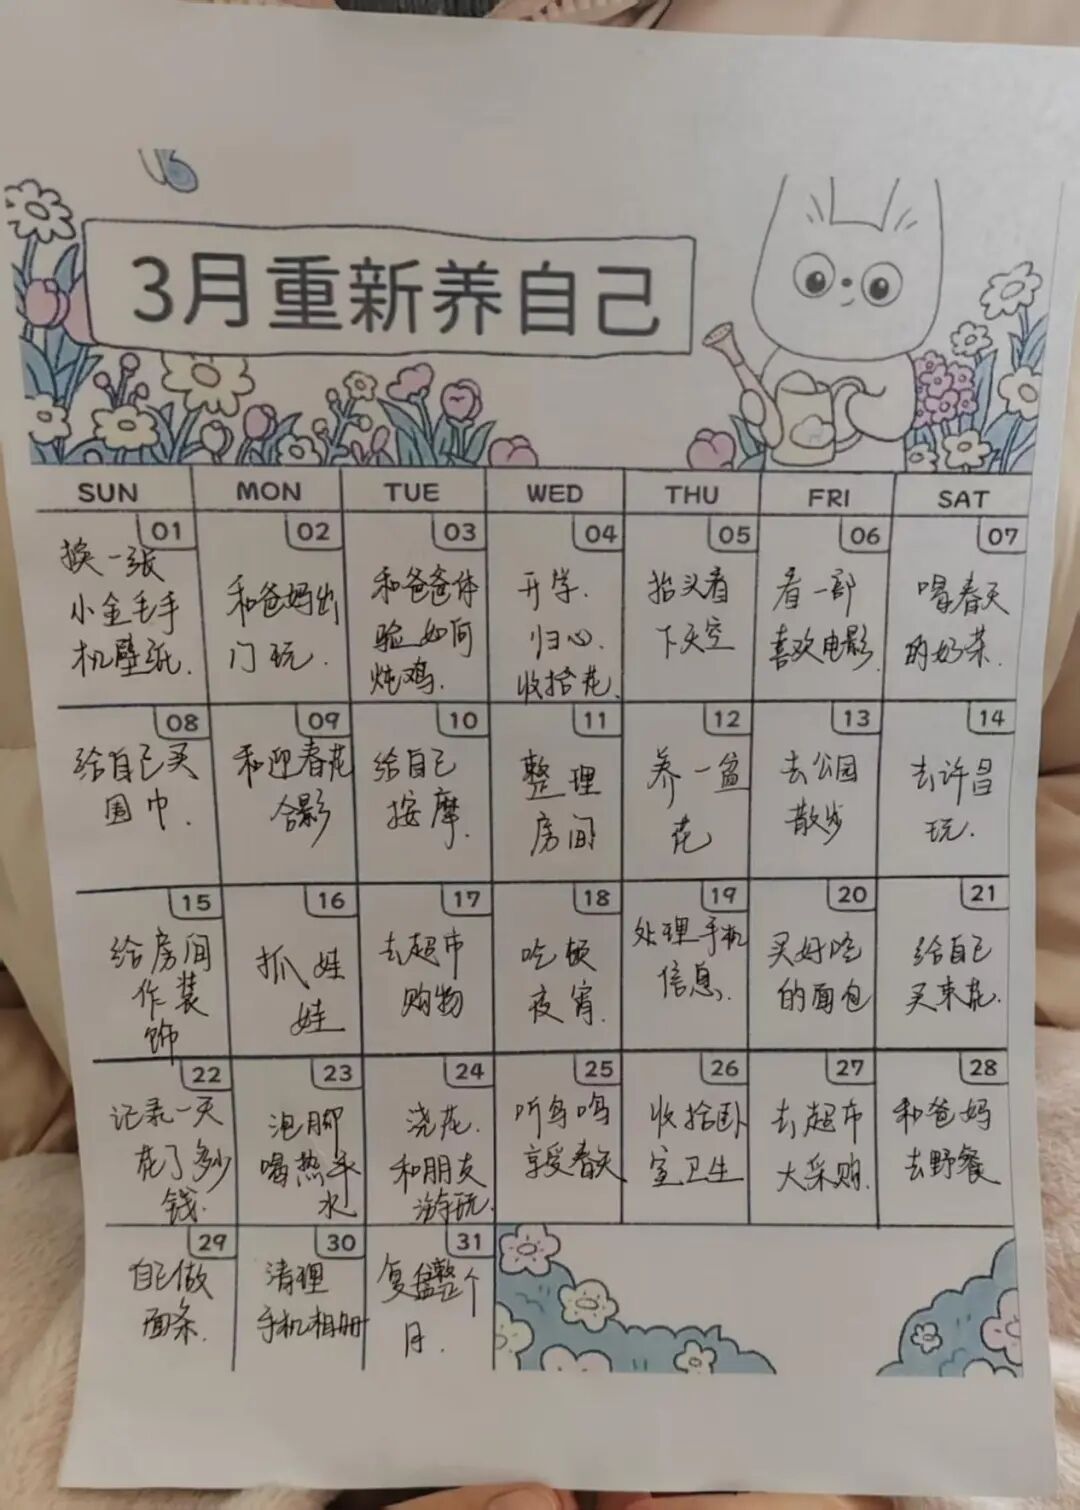 3月重新养自己
SUN MON TUE WED THU FRI SAT
01
换一张
小金毛手
机壁纸.
02
和爸妈出
门玩.
03
和爸爸体
验如何
炖鸡.
04
开学.
归心.
收拾花.
05
抬头看
下天空
06
看一部
喜欢电影.
07
喝春天
的奶茶.
08
给自己买
围巾.
09
和迎春花
合影
10
给自己
按摩.
11
整理
房间
12
养一盆
花
13
去公园
散步
14
去许昌
玩.
15
给房间
作装
饰
16
抓娃
娃
17
去超市
购物
18
吃顿
夜宵.
19
处理手机
信息.
20
买好吃
的面包
21
给自己
买束花.
22
记录一天
花了多少
钱.
23
泡脚
喝热水
24
浇花.
和朋友
游玩.
25
听鸟鸣
享受春天
26
收拾卧
室卫生
27
去超市
大采购.
28
和爸妈
去野餐
29
自己做
面条.
30
清理
手机相册
31
复盘整个
月.